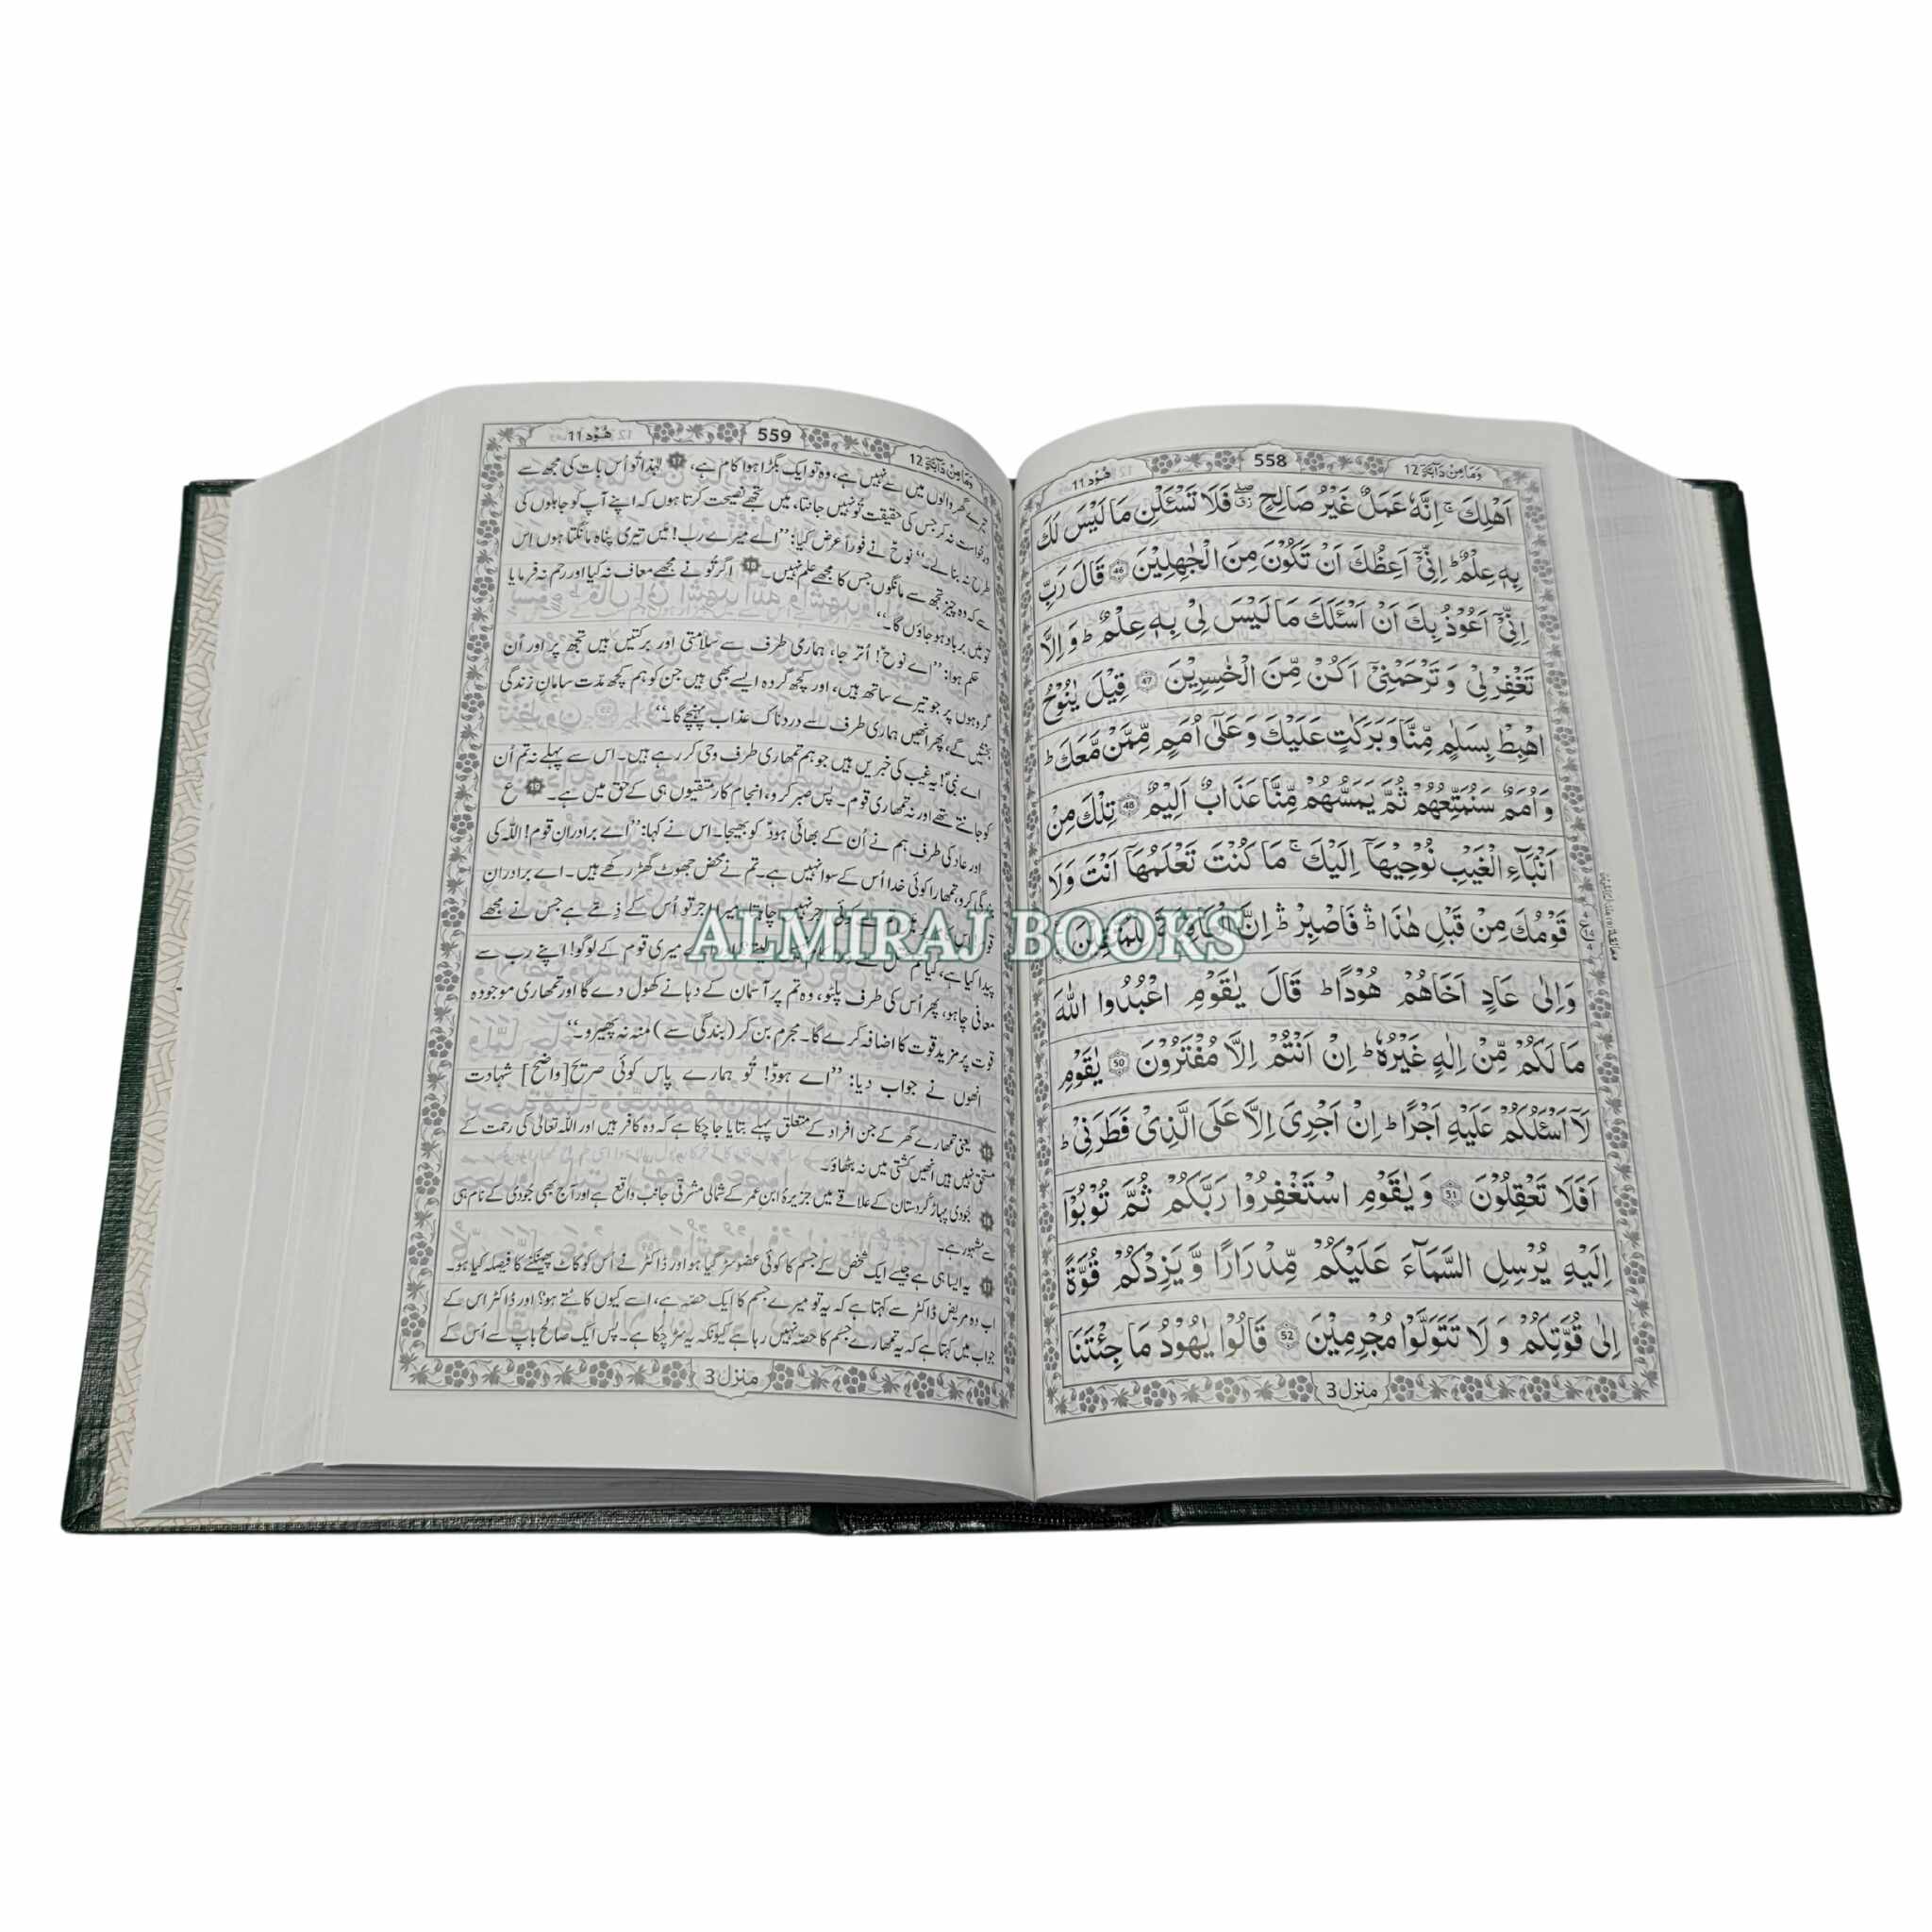 وَمَا مِنْ دَآبَّةٍ 12
558
هُوْد 11
اَهْلِكَ ۚ اِنَّهٗ عَمَلٌ غَيْرُ صَالِحٍ ۖ فَلَا تَسْـَٔلْنِ مَا لَيْسَ لَكَ
بِهٖ عِلْمٌ ؕ اِنِّيْۤ اَعِظُكَ اَنْ تَكُوْنَ مِنَ الْجٰهِلِيْنَ 46 قَالَ رَبِّ
اِنِّيْۤ اَعُوْذُ بِكَ اَنْ اَسْـَٔلَكَ مَا لَيْسَ لِيْ بِهٖ عِلْمٌ ؕ وَ اِلَّا
تَغْفِرْ لِيْ وَ تَرْحَمْنِيْۤ اَكُنْ مِّنَ الْخٰسِرِيْنَ 47 قِيْلَ يٰنُوْحُ
اهْبِطْ بِسَلٰمٍ مِّنَّا وَ بَرَكٰتٍ عَلَيْكَ وَ عَلٰۤى اُمَمٍ مِّمَّنْ مَّعَكَ ؕ
وَ اُمَمٌ سَنُمَتِّعُهُمْ ثُمَّ يَمَسُّهُمْ مِّنَّا عَذَابٌ اَلِيْمٌ 48 تِلْكَ مِنْ
اَنْۢبَآءِ الْغَيْبِ نُوْحِيْهَاۤ اِلَيْكَ ۚ مَا كُنْتَ تَعْلَمُهَاۤ اَنْتَ وَ لَا
قَوْمُكَ مِنْ قَبْلِ هٰذَا ؕ فَاصْبِرْ ؕ اِنَّ الْعَاقِبَةَ لِلْمُتَّقِيْنَ
وَ اِلٰى عَادٍ اَخَاهُمْ هُوْدًا ؕ قَالَ يٰقَوْمِ اعْبُدُوا اللّٰهَ
مَا لَكُمْ مِّنْ اِلٰهٍ غَيْرُهٗ ؕ اِنْ اَنْتُمْ اِلَّا مُفْتَرُوْنَ 50 يٰقَوْمِ
لَاۤ اَسْـَٔلُكُمْ عَلَيْهِ اَجْرًا ؕ اِنْ اَجْرِيَ اِلَّا عَلَى الَّذِيْ فَطَرَنِيْ ؕ
اَفَلَا تَعْقِلُوْنَ 51 وَ يٰقَوْمِ اسْتَغْفِرُوْا رَبَّكُمْ ثُمَّ تُوْبُوْۤا
اِلَيْهِ يُرْسِلِ السَّمَآءَ عَلَيْكُمْ مِّدْرَارًا وَّ يَزِدْكُمْ قُوَّةً
اِلٰى قُوَّتِكُمْ وَ لَا تَتَوَلَّوْا مُجْرِمِيْنَ 52 قَالُوْا يٰهُوْدُ مَا جِئْتَنَا
منزل 3
وَمَا مِنْ دَآبَّةٍ 12
559
هُوْد 11
تیرے گھر والوں میں سے نہیں ہے، وہ تو ایک بگڑا ہوا کام ہے، 17 لہٰذا تُو اُس بات کی مجھ سے
درخواست نہ کر جس کی حقیقت تُو نہیں جانتا، میں تجھے نصیحت کرتا ہوں کہ اپنے آپ کو جاہلوں کی
طرح نہ بنا لے۔‘‘ نوحؑ نے فوراً عرض کیا: ’’اے میرے رب! میں تیری پناہ مانگتا ہوں اس
سے کہ وہ چیز تجھ سے مانگوں جس کا مجھے علم نہیں۔ 18 اگر تُو نے مجھے معاف نہ کیا اور رحم نہ فرمایا
تو میں برباد ہو جاؤں گا۔‘‘
حکم ہوا: ’’اے نوحؑ! اُتر جا، ہماری طرف سے سلامتی اور برکتیں ہیں تجھ پر اور اُن
گروہوں پر جو تیرے ساتھ ہیں، اور کچھ گروہ ایسے بھی ہیں جن کو ہم کچھ مدّت سامانِ زندگی
بخشیں گے، پھر انھیں ہماری طرف سے دردناک عذاب پہنچے گا۔‘‘
اے نبیؐ! یہ غیب کی خبریں ہیں جو ہم تمھاری طرف وحی کر رہے ہیں۔ اس سے پہلے نہ تم اُن
کو جانتے تھے اور نہ تمھاری قوم۔ پس صبر کرو، انجام کار متقیوں ہی کے حق میں ہے۔ 19 ع
اور عاد کی طرف ہم نے اُن کے بھائی ہودؑ کو بھیجا۔ اس نے کہا: ’’اے برادرانِ قوم! اللہ کی
بندگی کرو، تمھارا کوئی خدا اُس کے سوا نہیں ہے۔ تم نے محض جھوٹ گھڑ رکھے ہیں۔ اے برادرانِ
کوئی اجر نہیں چاہتا، میرا اجر تو اُس کے ذمّے ہے جس نے مجھے
پیدا کیا ہے، کیا تم میری قوم کے لوگو! اپنے رب سے
معافی چاہو، پھر اُس کی طرف پلٹو، وہ تم پر آسمان کے دہانے کھول دے گا اور تمھاری موجودہ
قوت پر مزید قوت کا اضافہ کرے گا۔ مجرم بن کر (بندگی سے) منہ نہ پھیرو۔‘‘
اُنھوں نے جواب دیا: ’’اے ہودؑ! تُو ہمارے پاس کوئی صریح [واضح] شہادت
یعنی تمھارے گھر کے جن افراد کے متعلق پہلے بتایا جا چکا ہے کہ وہ کافر ہیں اور اللہ تعالیٰ کی رحمت کے
مستحق نہیں ہیں انھیں کشتی میں نہ بٹھاؤ۔
جُودی پہاڑ کُردستان کے علاقے میں جزیرۂ ابنِ عمر کے شمالی مشرقی جانب واقع ہے اور آج بھی جُودی کے نام ہی
سے مشہور ہے۔
17 یہ ایسا ہی ہے جیسے ایک شخص کے جسم کا کوئی عضو سڑ گیا ہو اور ڈاکٹر نے اُس کو کاٹ پھینکنے کا فیصلہ کیا ہو۔
اب وہ مریض ڈاکٹر سے کہتا ہے کہ یہ تو میرے جسم کا ایک حصّہ ہے، اسے کیوں کاٹتے ہو؟ اور ڈاکٹر اس کے
جواب میں کہتا ہے کہ یہ تمھارے جسم کا حصّہ نہیں رہا ہے کیونکہ یہ سڑ چکا ہے۔ پس ایک صالح باپ سے اُس کے
منزل 3
ALMIRAJ BOOKS